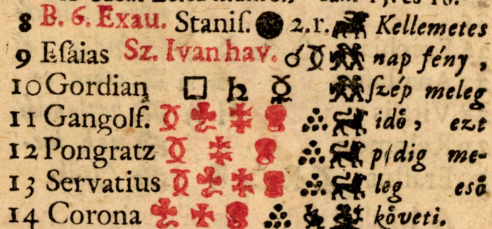 8 B. 6. Exau. Stanis. 2. r. Kellemetes
9 Esaias Sz. Ivan hav. ☌ nap fény,
10 Gordian □ ♄ ☿ szép meleg
11 Gangolf. idö, ezt
12 Pongratz pedig me-
13 Servatius leg esö
14 Corona követi.